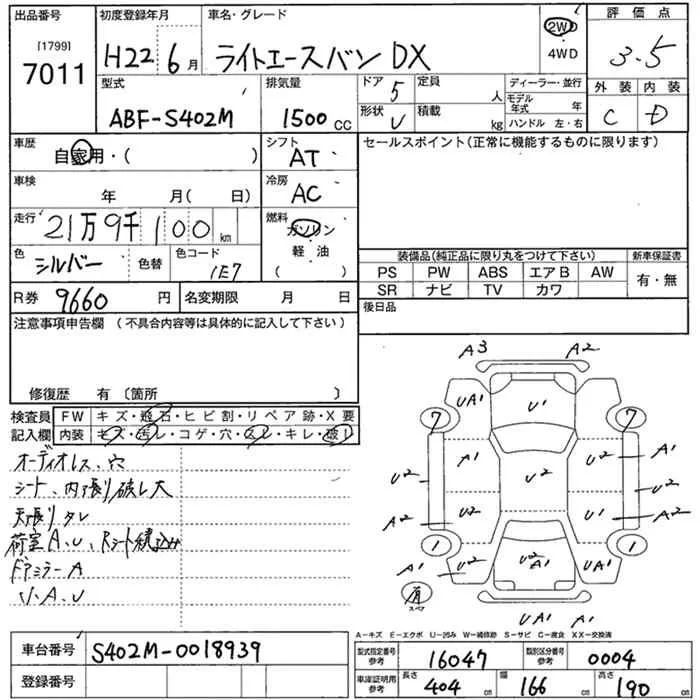 出品番号 初度登録年月 車名・グレード 2WD 評価点
[1799]
7011 H22 6月 ライトエースバン DX 4WD 3.5
型式 排気量 ドア 5 定員 人 ディーラー・並行 外装 内装
ABF-S402M 1500 CC 形状 V 積載 kg モデル年式 年 C D
ハンドル 左・右
車歴 自家用・( ) シフト AT セールスポイント(正常に機能するものに限ります)
車検 年 月( 日) 冷房 AC
走行 21万9千100km 燃料 ガソリン
軽油
( )
色 シルバー 色替 色コード 1E7
装備品(純正品に限り丸をつけて下さい) 新車保証書
PS PW ABS エアB AW 有・無
SR ナビ TV カワ
R券 9660円 名変期限 月 日 後日品
注意事項申告欄 (不具合内容等は具体的に記入して下さい)
修復歴 有〔箇所 〕
検査員 FW キズ・飛石・ヒビ割・リペア跡・X要
記入欄 内装 キズ・汚レ・コゲ・穴・スレ・キレ・破レ
オーディオレス、穴
シート、内張り破レ大
天張りタレ
荷室A、U、Rシート積込み
ドアミラーA
A3 A2
UA1 U1
7 7
A1 A1
U2 U2 U2
A2 U2 U1 A2
1 1
A1 U2 U2 A1 U2 A1
有 スペア
UA1 A1
A-キズ E-エクボ U-凹み W-補修跡 S-サビ C-腐食 XX-交換済
車台番号 S402M-0018939
登録番号
型式指定番号 参考 16047 類別区分番号 参考 0004
車庫証明用 参考 長さ 404cm 幅 166cm 高さ 190cm